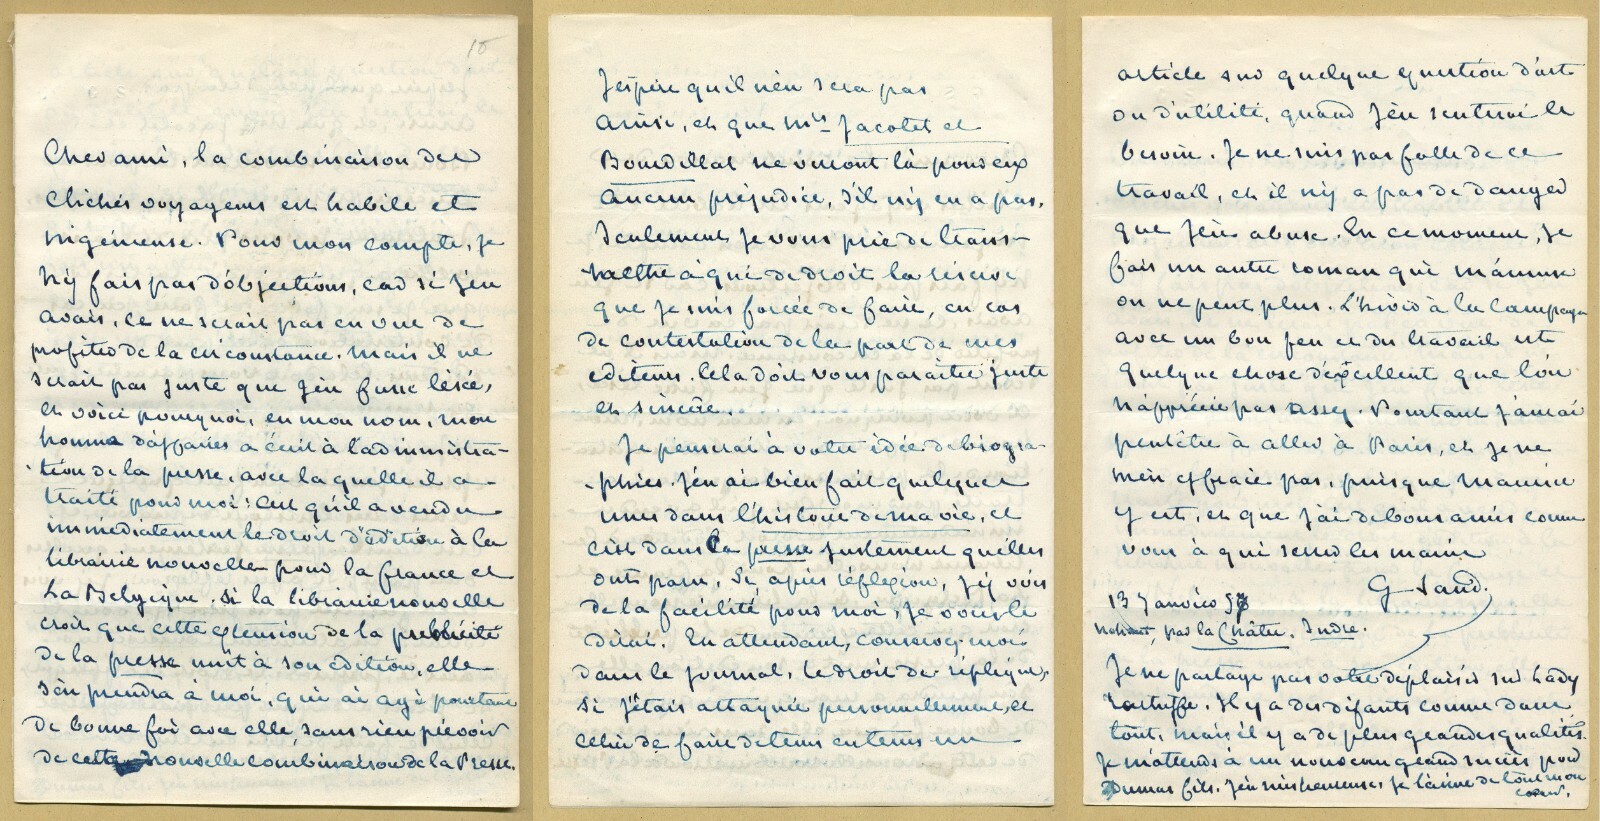 15
Cher ami, la combinaison des
clichés voyageurs est habile et
ingénieuse. Pour mon compte, je
n'y fais pas d'objections, car si j'en
avais, ce ne serait pas en vue de
profiter de la circonstance. Mais il ne
serait pas juste que j'en fusse lésée,
et voici pourquoi, en mon nom, mon
homme d'affaires a écrit à l'administra-
tion de la presse, avec laquelle il a
traité pour moi: C'est qu'il a vendu
immédiatement le droit d'édition à la
librairie nouvelle pour la france et
La Belgique, si la librairie nouvelle
croit que cette extension de la publicité
de la presse nuit à son édition, elle
s'en prendra à moi, qui ai agi pourtant
de bonne foi avec elle, sans rien prévoir
de cette nouvelle combinaison de la Presse.
J'espère qu'il n'en sera pas
ainsi, et que Mrs Jacotet et
Bourdillat ne verront là pour eux
aucun préjudice, s'il n'y en a pas.
Seulement je vous prie de trans-
mettre à qui de droit la réserve
que je suis forcée de faire, en cas
de contestation de la part de mes
éditeurs. Cela doit vous paraître juste
et sincère.
Je penserai à votre idée de biogra-
phies. J'en ai bien fait quelques
unes dans l'histoire de ma vie, et
c'est dans la presse justement qu'elles
ont paru. Si, après réflexion, j'y vois
de la facilité pour moi, je vous le
dirai. En attendant, conservez-moi
dans le journal, le droit de réplique,
si j'étais attaquée personnellement, et
celui de faire de tems en tems un
article sur quelque question d'art
ou d'utilité, quand j'en sentirai le
besoin. Je ne suis pas folle de ce
travail, et il n'y a pas de danger
que j'en abuse. En ce moment, je
fais un autre roman qui m'amuse
on ne peut plus. L'hiver à la campagne
avec un bon feu et du travail est
quelque chose d'excellent que l'on
n'apprécie pas assez. Pourtant j'aurai
peutêtre à aller à Paris, et je ne
m'en effraie pas, puisque Maurice
y est, et que j'ai de bons amis comme
vous à qui serrer les mains
G. Sand.
13 Janvier 57
nohant, par la Châtre. Indre.
Je ne partage pas votre déplaisir sur Lady
Tartuffe. Il y a des défauts comme dans
tout, mais il y a de plus grandes qualités.
Je m'attends à un nouveau grand succès pour
Dumas fils. J'en suis heureuse, je l'aime de tout mon
coeur.